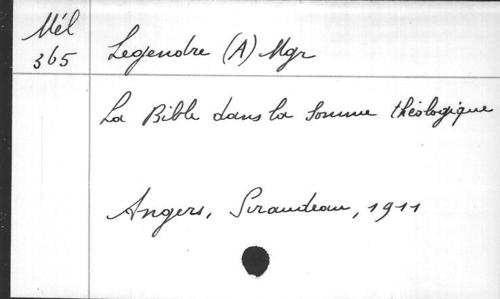 Mél
365
Legendre (A) Mgr
La Bible dans la Somme théologique
Angers, Siraudeau, 1911